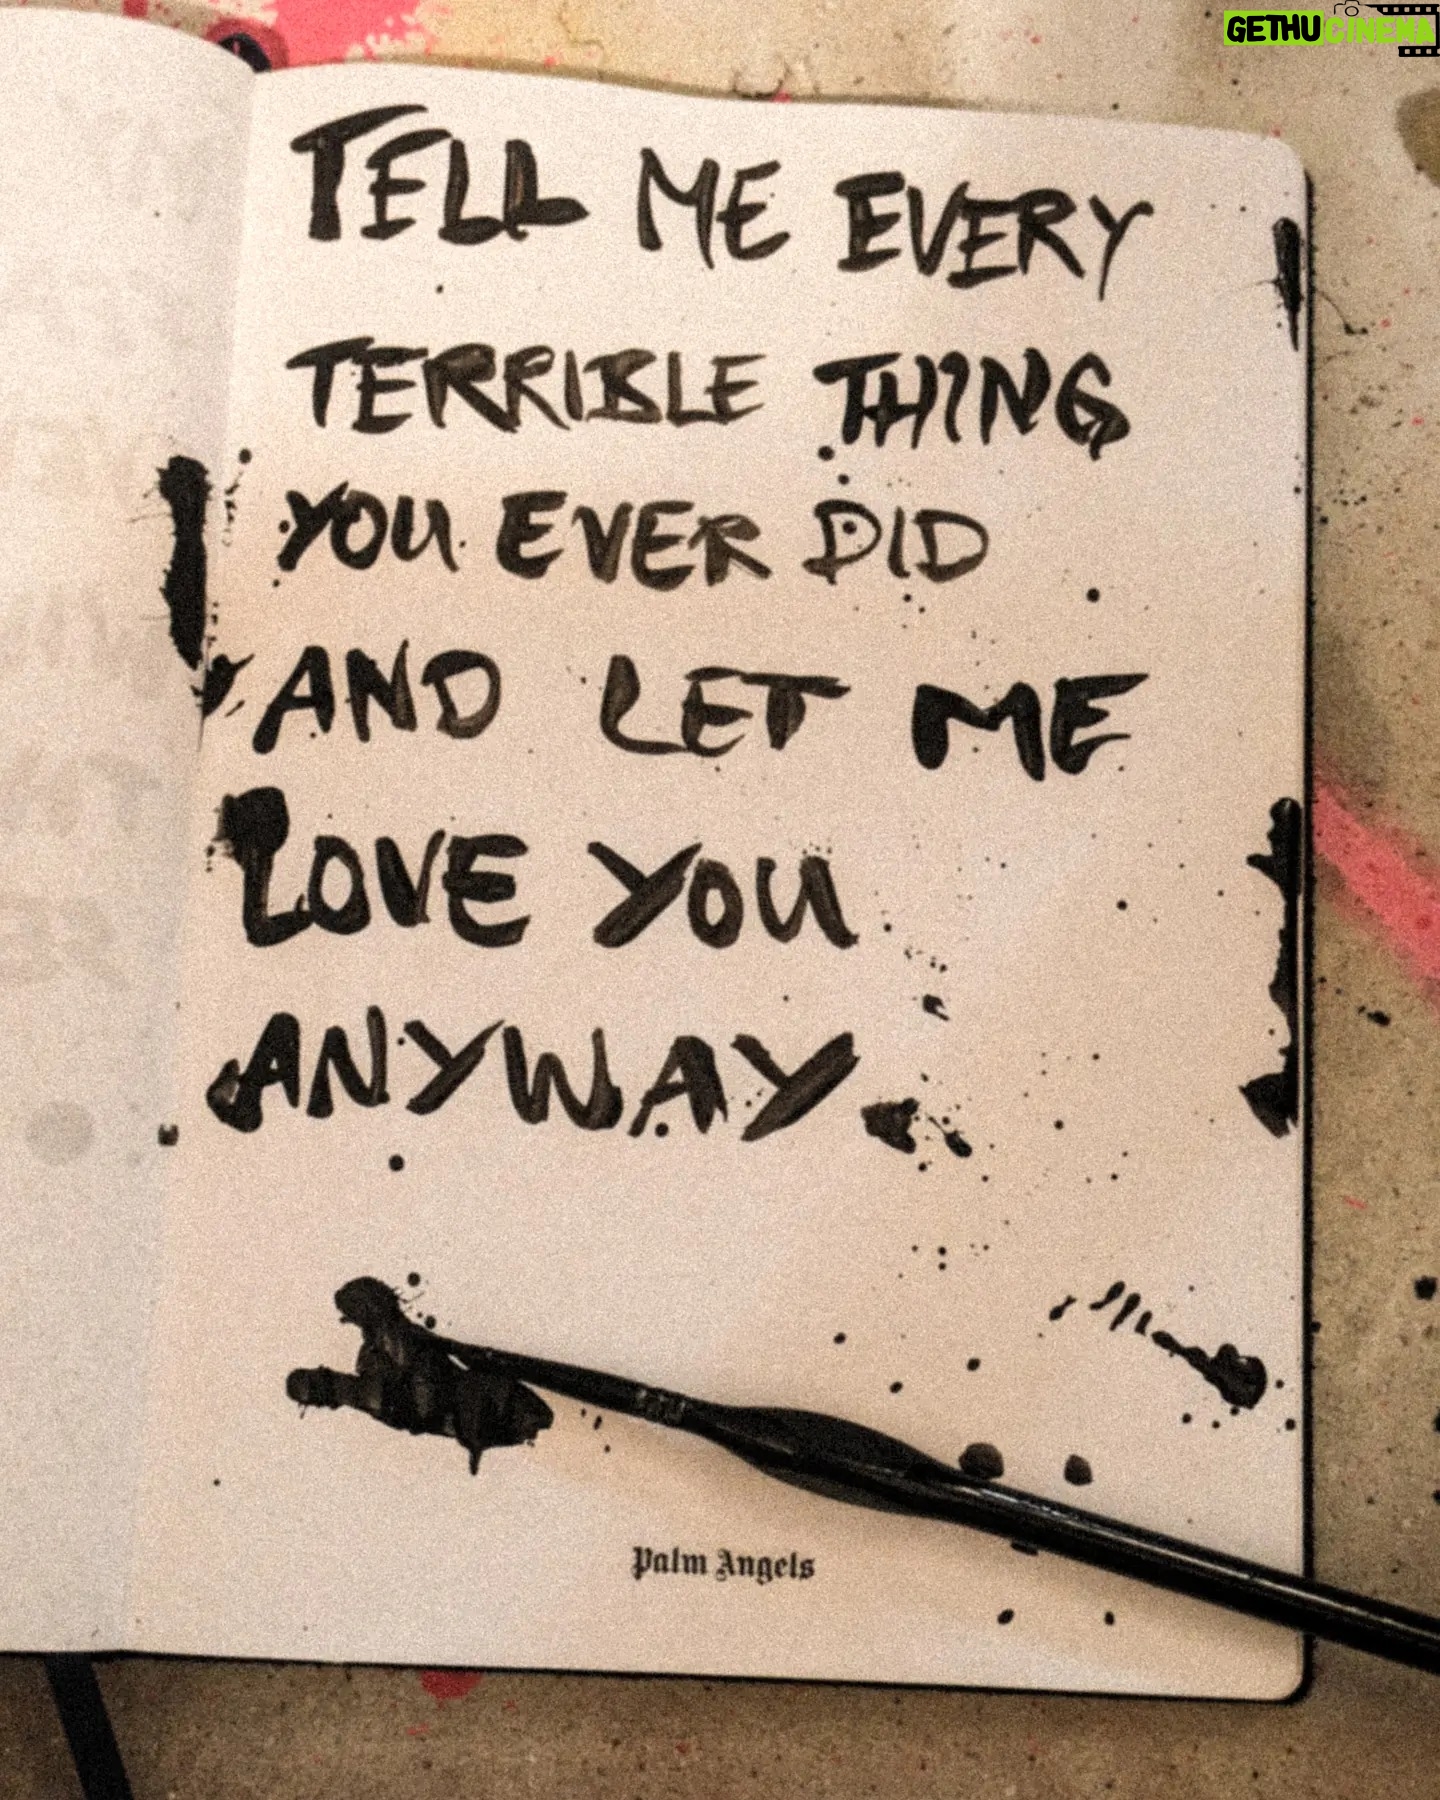 GETHUCINEMA
TELL ME EVERY
TERRIBLE THING
YOU EVER DID
AND LET ME
LOVE YOU
ANYWAY.
Palm Angels